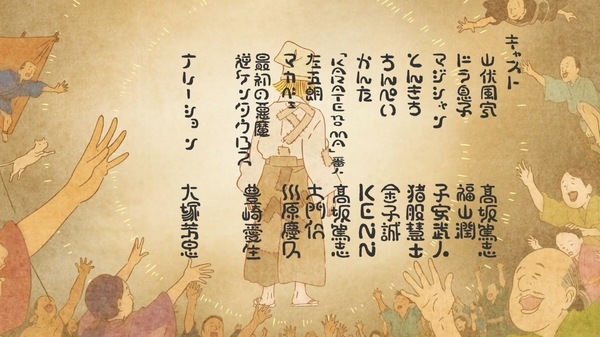 キャスト
山伏 高坂篤志
ドラ息子 福山潤
マジシャン 子安武人
とんきち 猪股慧士
ちんぺい 金子誠
かんた KENN
高坂篤志
左五朗 土門仁
マカベェ 川原慶久
最初の悪魔
逆ケンタウロス 豊崎愛生
ナレーション 大塚芳忠